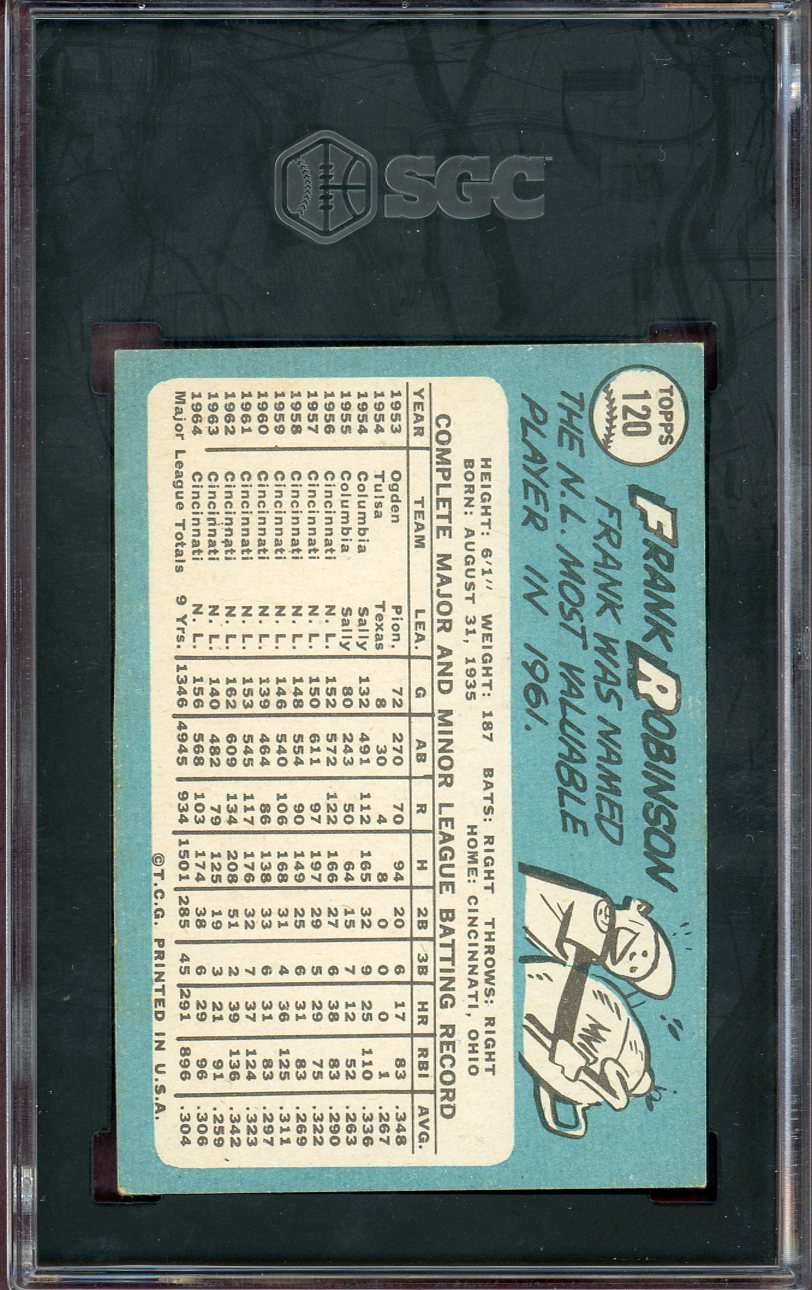 SGC
TOPPS
120
FRANK ROBINSON
FRANK WAS NAMED
THE N.L. MOST VALUABLE
PLAYER IN 1961.
MVP
HEIGHT: 6'1" WEIGHT: 187 BATS: RIGHT THROWS: RIGHT
BORN: AUGUST 31, 1935 HOME: CINCINNATI, OHIO
COMPLETE MAJOR AND MINOR LEAGUE BATTING RECORD
YEAR TEAM LEA. G AB R H 2B 3B HR RBI AVG.
1953 Ogden Pion. 72 270 70 94 20 6 17 83 .348
1954 Tulsa Texas 8 30 4 8 0 0 0 1 .267
1954 Columbia Sally 132 491 112 165 32 9 25 110 .336
1955 Columbia Sally 80 243 50 64 15 7 12 52 .263
1956 Cincinnati N. L. 152 572 122 166 27 6 38 83 .290
1957 Cincinnati N. L. 150 611 97 197 29 5 29 75 .322
1958 Cincinnati N. L. 148 554 90 149 25 6 31 83 .269
1959 Cincinnati N. L. 146 540 106 168 31 4 36 125 .311
1960 Cincinnati N. L. 139 464 86 138 33 6 31 83 .297
1961 Cincinnati N. L. 153 545 117 176 32 7 37 124 .323
1962 Cincinnati N. L. 162 609 134 208 51 2 39 136 .342
1963 Cincinnati N. L. 140 482 79 125 19 3 21 91 .259
1964 Cincinnati N. L. 156 568 103 174 38 6 29 96 .306
Major League Totals 9 Yrs. 1346 4945 934 1501 285 45 291 896 .304
©T.C.G. PRINTED IN U.S.A.